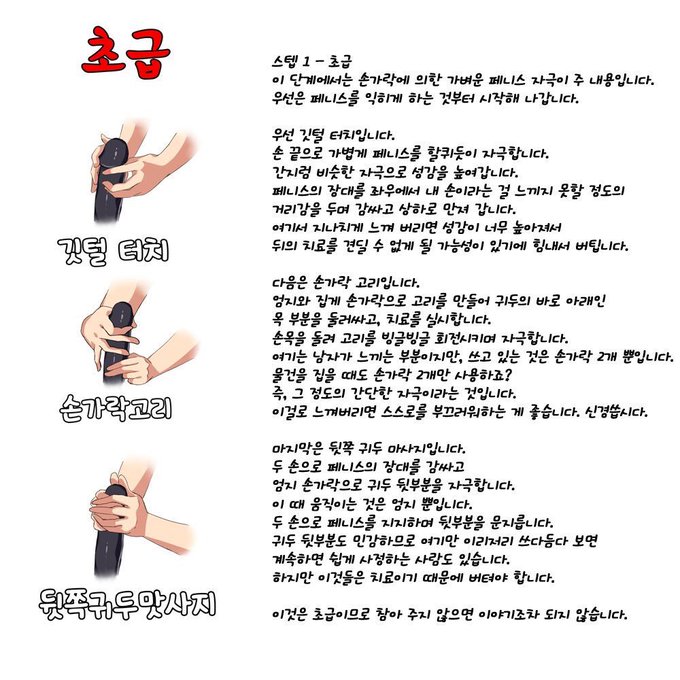 초급
스텝 1 - 초급
이 단계에서는 손가락에 의한 가벼운 페니스 자극이 주 내용입니다.
우선은 페니스를 익히게 하는 것부터 시작해 나갑니다.
우선 깃털 터치입니다.
손 끝으로 가볍게 페니스를 할퀴듯이 자극합니다.
간지럼 비슷한 자극으로 성감을 높여갑니다.
페니스의 장대를 좌우에서 내 손이라는 걸 느끼지 못할 정도의
거리감을 두며 감싸고 상하로 만져 갑니다.
여기서 지나치게 느껴 버리면 성감이 너무 높아져서
뒤의 치료를 견딜 수 없게 될 가능성이 있기에 힘내서 버팁니다.
깃털 터치
다음은 손가락 고리입니다.
엄지와 집게 손가락으로 고리를 만들어 귀두의 바로 아래인
목 부분을 둘러싸고, 치료를 실시합니다.
손목을 돌려 고리를 빙글빙글 회전시키며 자극합니다.
여기는 남자가 느끼는 부분이지만, 쓰고 있는 것은 손가락 2개 뿐입니다.
물건을 집을 때도 손가락 2개만 사용하죠?
즉, 그 정도의 간단한 자극이라는 것입니다.
이걸로 느껴버리면 스스로를 부끄러워하는 게 좋습니다. 신경씁시다.
손가락고리
마지막은 뒷쪽 귀두 마사지입니다.
두 손으로 페니스의 장대를 감싸고
엄지 손가락으로 귀두 뒷부분을 자극합니다.
이 때 움직이는 것은 엄지 뿐입니다.
두 손으로 페니스를 지지하며 뒷부분을 문지릅니다.
귀두 뒷부분도 민감하므로 여기만 이리저리 쓰다듬다 보면
계속하면 쉽게 사정하는 사람도 있습니다.
하지만 이것들은 치료이기 때문에 버텨야 합니다.
이것은 초급이므로 참아 주지 않으면 이야기조차 되지 않습니다.
뒷쪽귀두맛사지